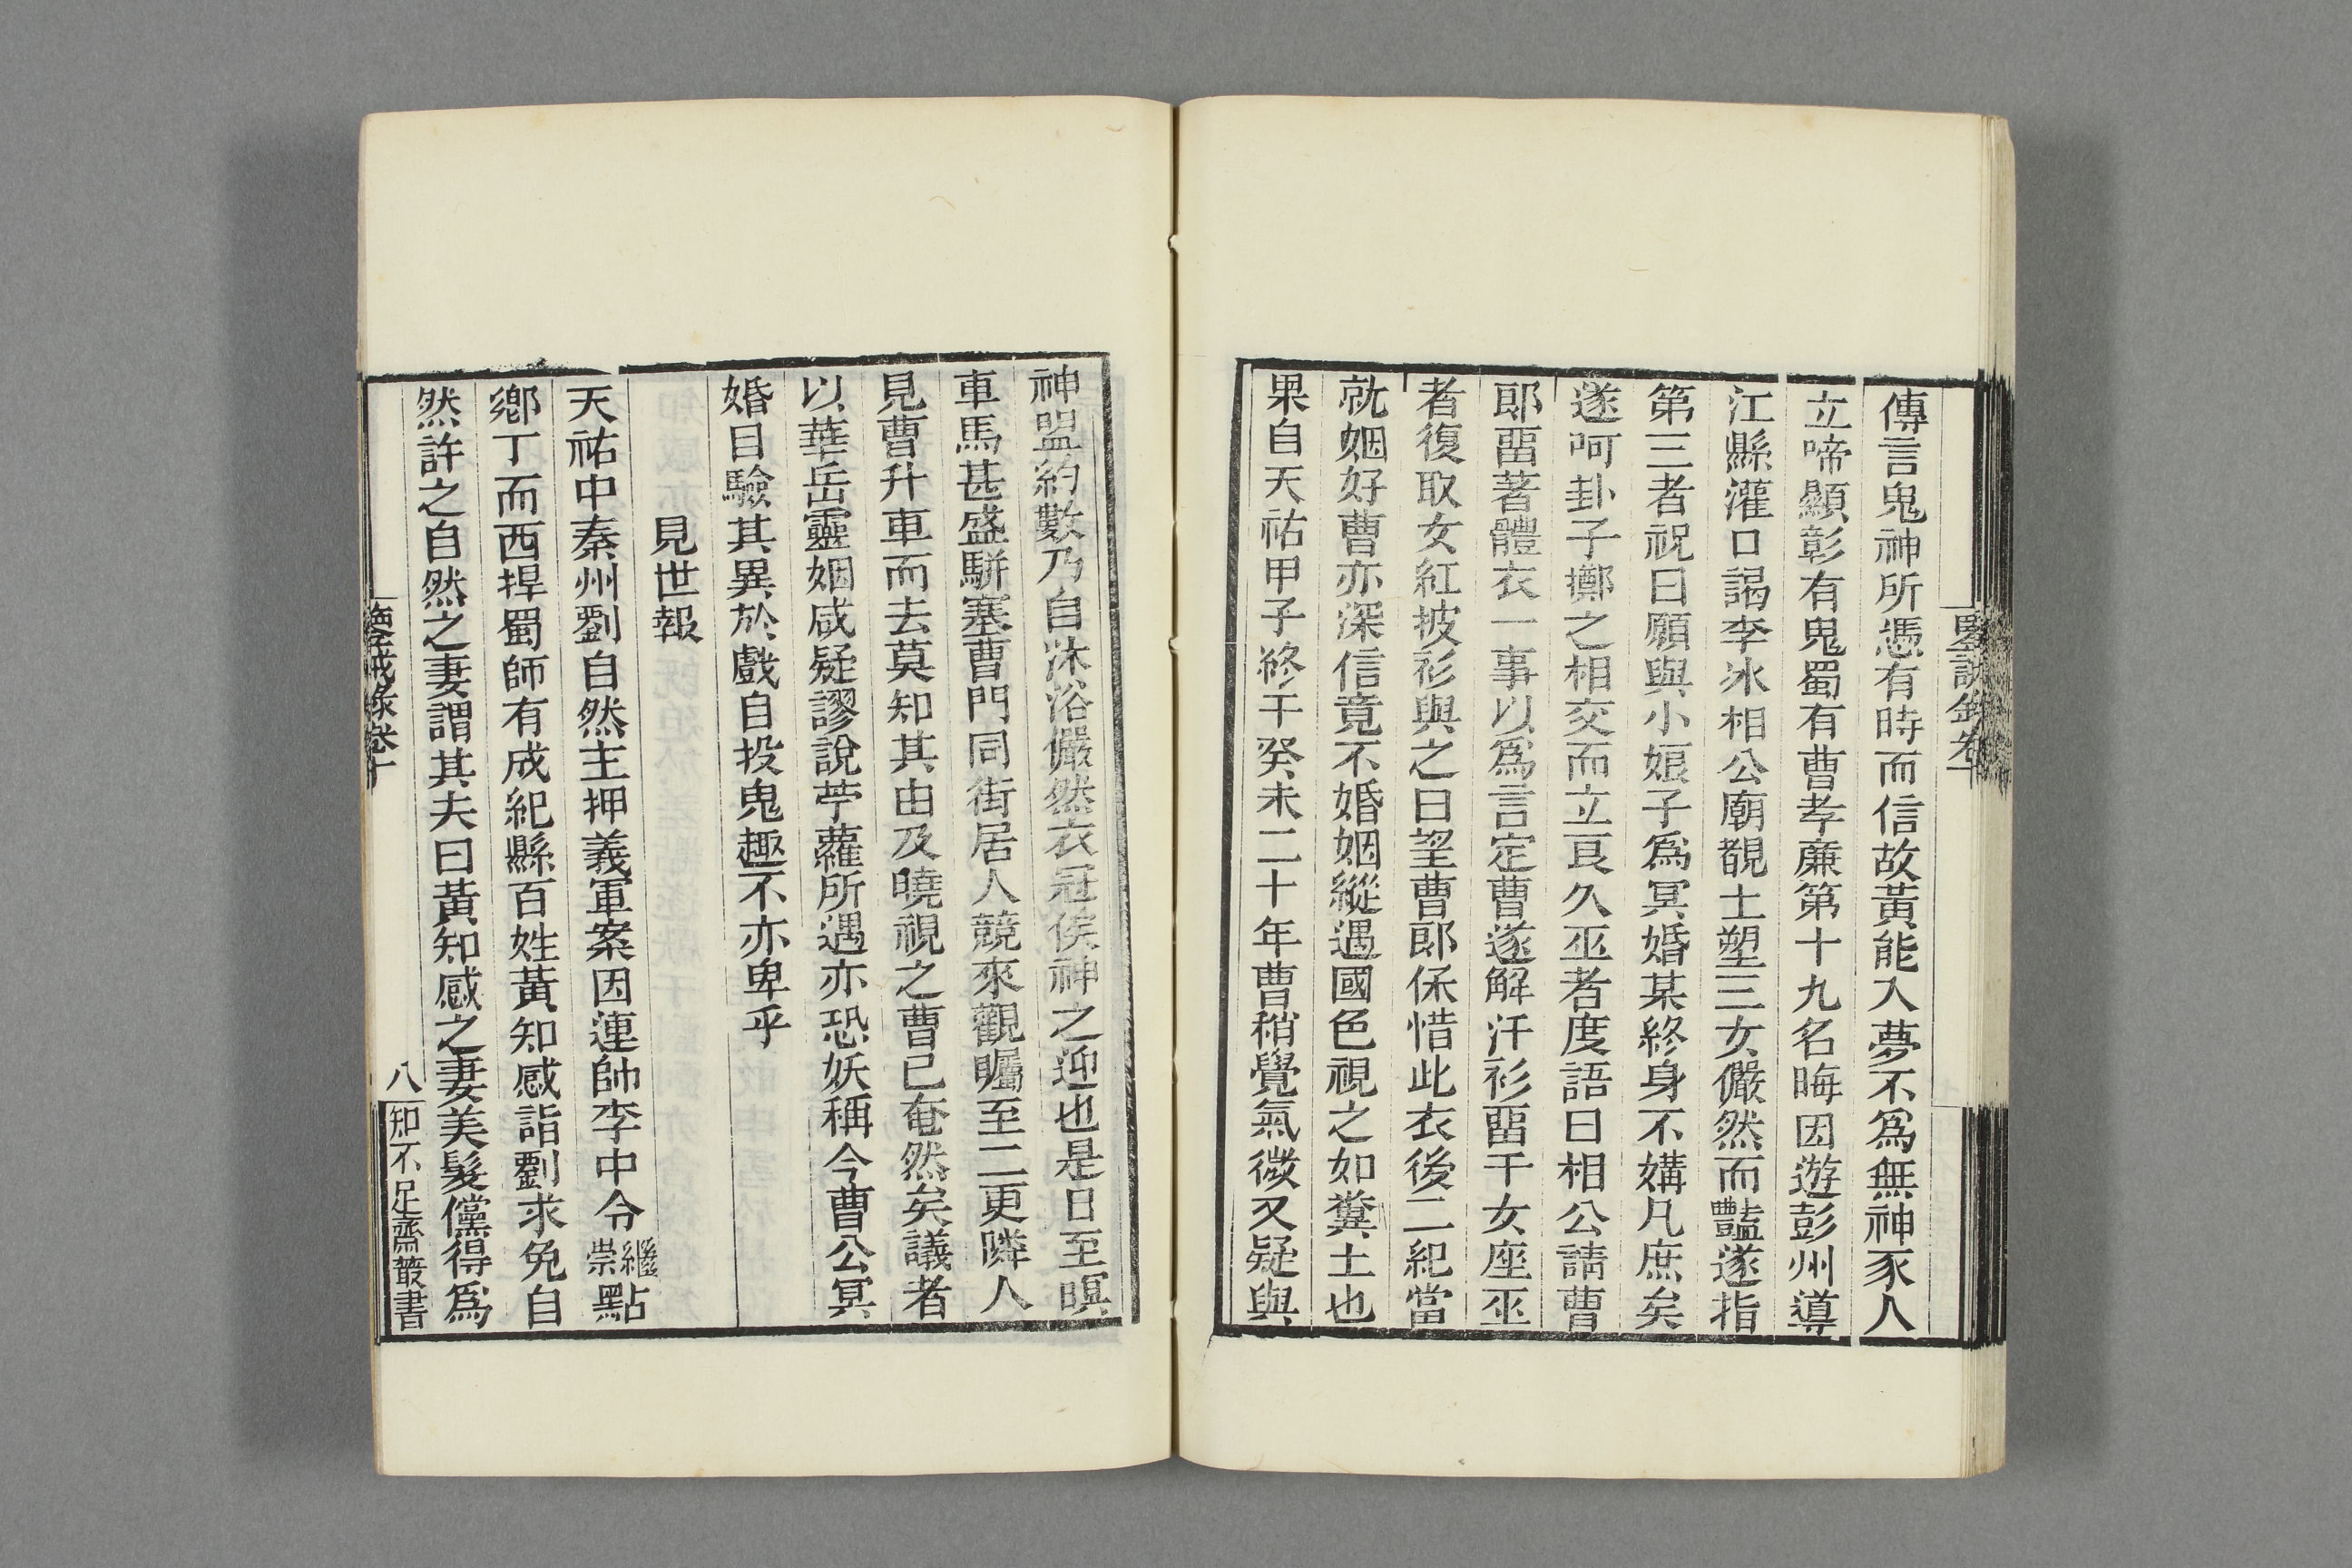 傳言鬼神所憑有時而信故黃能入夢不爲無神豕人
立啼顯彰有鬼蜀有曹孝廉第十九名晦因遊彭州導
江縣灌口謁李冰相公廟覩土塑三女儼然而豔遂指
第三者祝曰願與小娘子爲冥婚某終身不媾凡庶矣
遂呵卦子擲之相交而立良久巫者度語曰相公請曹
郎畱著體衣一事以爲言定曹遂解汗衫畱于女座巫
者復取女紅披衫與之曰望曹郎保惜此衣後二紀當
就姻好曹亦深信竟不婚姻縱遇國色視之如糞土也
果自天祐甲子終于癸未二十年曹稍覺氣微又疑與
神盟約數乃自沐浴儼然衣冠俟神之迎也是日至暝
車馬甚盛駢塞曹門同街居人競來觀矚至二更隣人
見曹升車而去莫知其由及曉視之曹已奄然矣議者
以華岳靈姻咸疑謬說苧蘿所遇亦恐妖稱今曹公冥
婚目驗其異於戲自投鬼趣不亦卑乎
見世報
天祐中秦州劉自然主押義軍案因連帥李中令繼崇點
鄉丁而西捍蜀師有成紀縣百姓黃知感詣劉求免自
然許之自然之妻謂其夫曰黃知感之妻美髮儻得爲
鑒誡錄卷十
八
知不足齋叢書